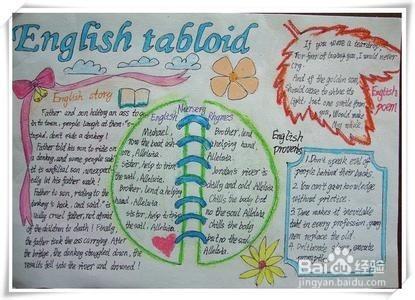 English tabloid
English story
Father and son holding an ass to
town, people laugh at them "
stupid, don't ride a donkey!
Father told his son to ride on
a donkey, and some people said
is unfilial son, unexpect
let his father walk!
Father to son, praying to the
donkey's back, and said: "
really cruel father, not afraid
of the children to death! Finally,
the father took the ass carrying. After
the bridge, the donkey struggled down, the
results fell into the river and drowned!
English Nursery Rhymes
Michael,
row the boat ash
ore, Alleluia.
Sister, help to trim
the sail, Alleluia.
Brother, lend a helping
hand, Alleluia.
Sister, help to trim
the sail, Alleluia.
Brother, lend
a helping hand
Alleluia.
Jordan's river is
chilly and cold Alleluia.
Chills the body but
no the soul Alleluia
Chilly the body
but no the soul
Alleluia.
If you were a teardrop,
For fear of losing you, I would never
cry.
And if the golden sun,
Would cease to shine its
light, but one smile from
you, Would make
my whole
English poem
English proverbs
1. Don't speak evil of
people behind their backs.
2. You can't gain knowledge
without practice.
3. Time makes it inevitable
that in every profession, young
men replace the old.
4. Deliberate slowly,
promptly.
Baidu 经验
jingyan.baidu.com